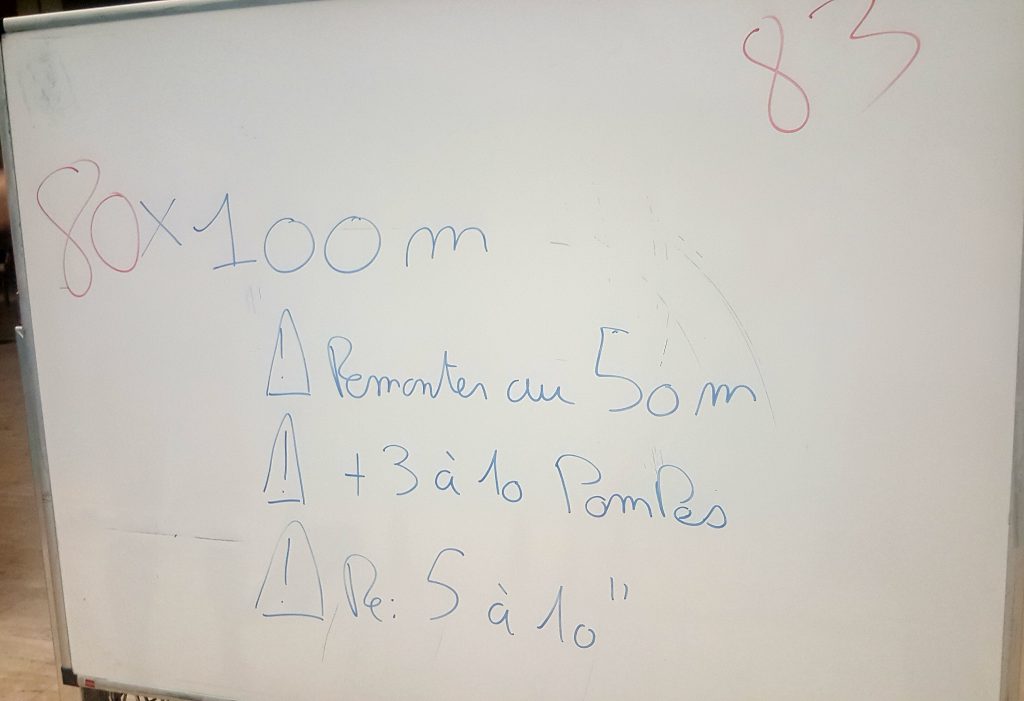 83
80x100 m
⚠ Remonter au 50 m
⚠ +3 à 10 PomPes
⚠ Re: 5 à 10"